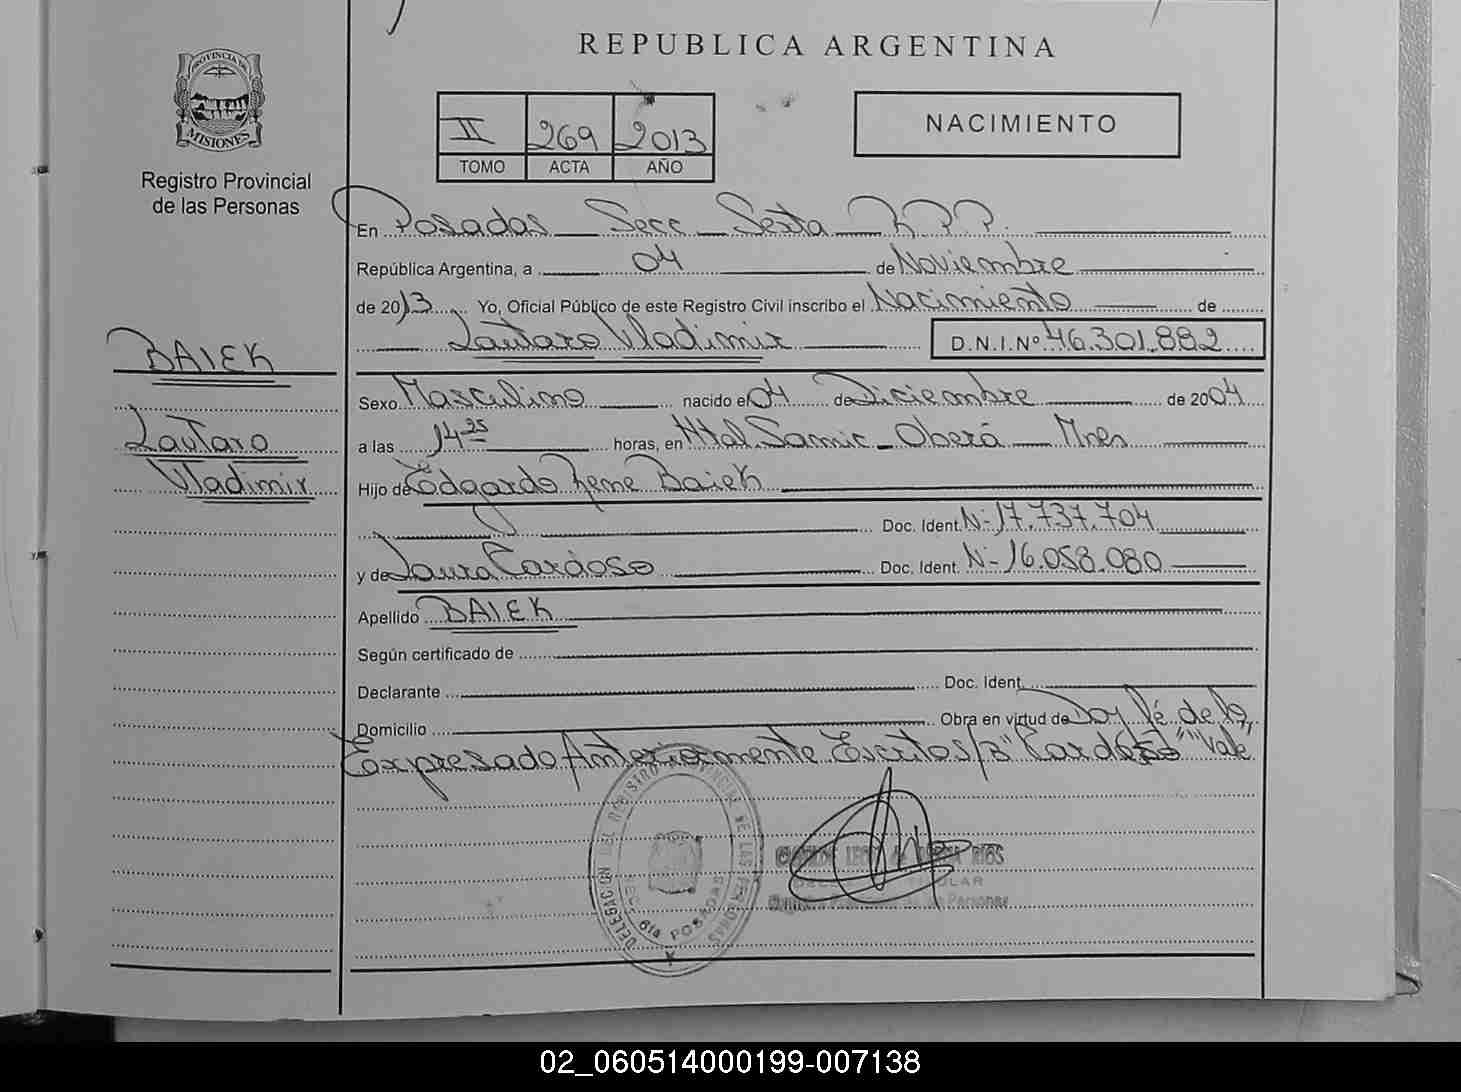 REPUBLICA ARGENTINA
PROVINCIA DE
MISIONES
Registro Provincial
de las Personas
II 269 2013
TOMO ACTA AÑO
NACIMIENTO
En Posadas Secc Sexta R.P.P.
República Argentina, a 04 de Noviembre
de 2013 Yo, Oficial Público de este Registro Civil inscribo el Nacimiento de
Lautaro Vladimir D.N.I.Nº 46.301.882
BAIEK
Lautaro
Vladimir
Sexo Masculino nacido el 04 de Diciembre de 2004
a las 14 25 horas, en Htal. Samic - Oberá Mnes
Hijo de Edgardo Rene Baiek
Doc. Ident. Nº 17.737.704
y de Laura Cardoso Doc. Ident. Nº 16.058.080
Apellido BAIEK
Según certificado de
Declarante Doc. Ident.
Domicilio Obra en virtud de Doy fé de lo
Expresado Anteriormente Escritos/B "Cardoso" "Vale"
DELEGACION DEL REGISTRO PROVINCIAL DE LAS PERSONAS
SECC 6ta POSADAS
RIOS
TITULAR
de las Personas
02_060514000199-007138